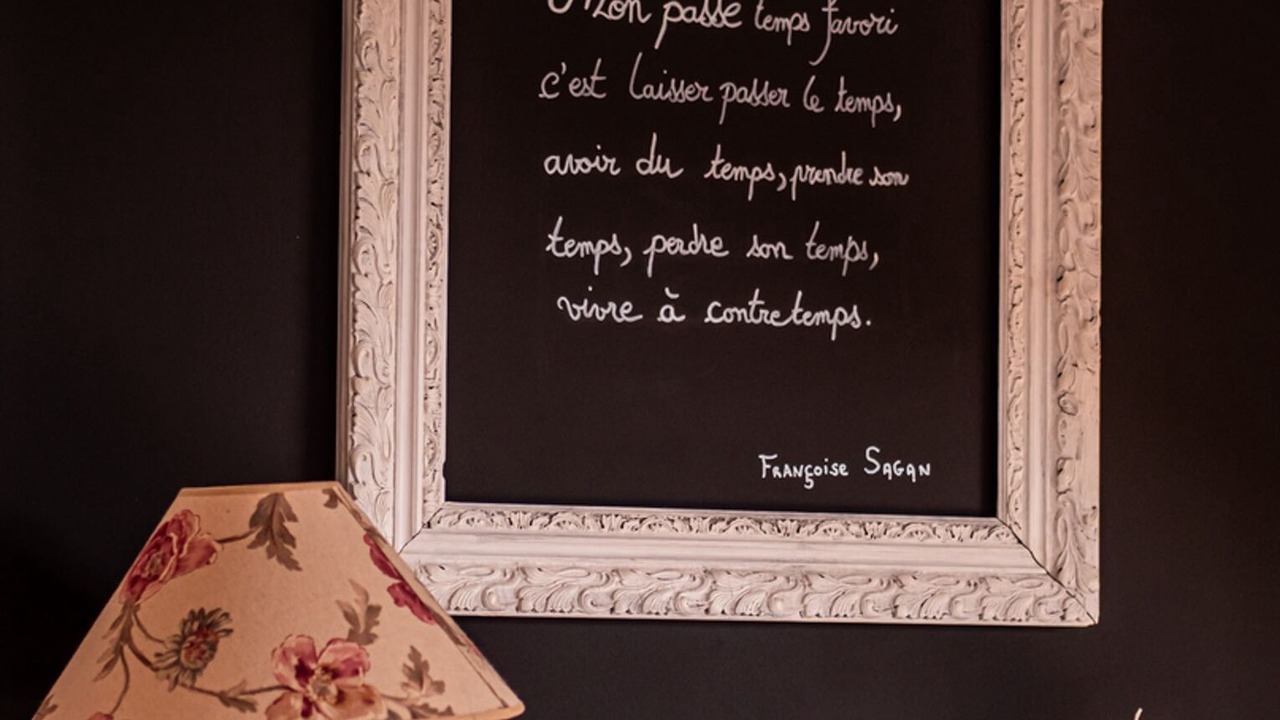 Mon passe temps favori
c'est laisser passer le temps,
avoir du temps, prendre son
temps, perdre son temps,
vivre à contretemps.
Françoise SAGAN